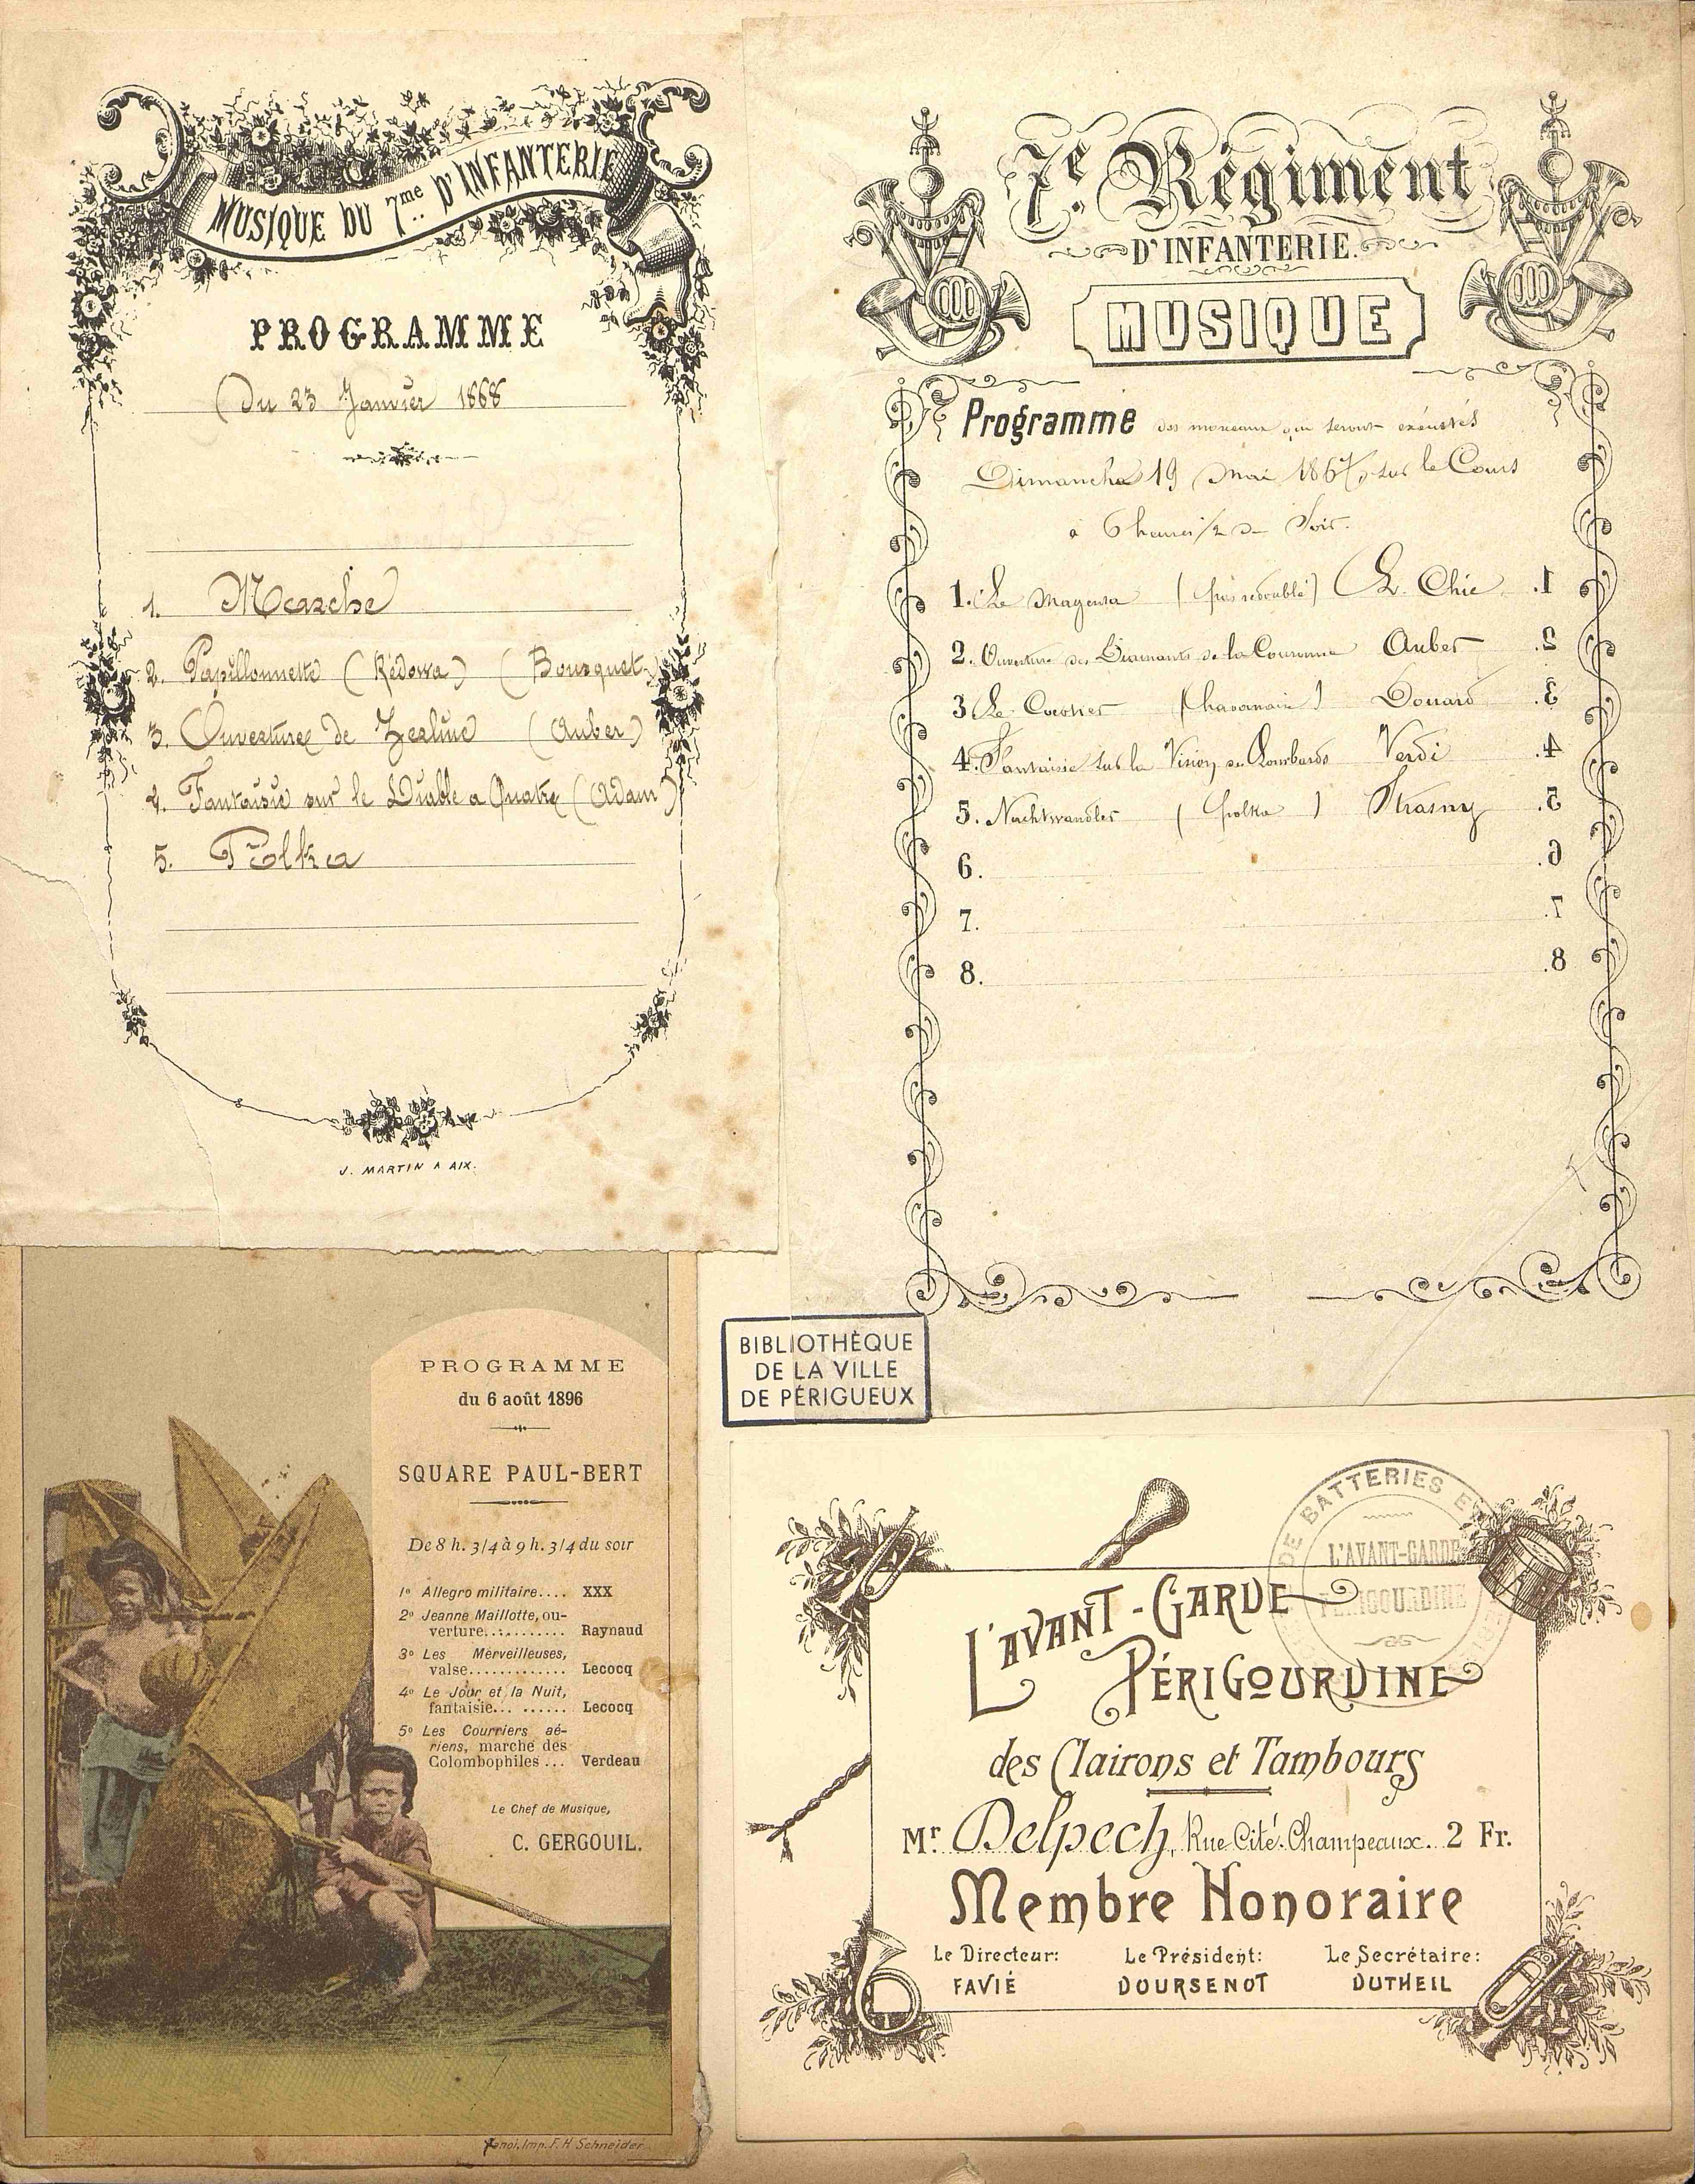 MUSIQUE DU 7me D'INFANTERIE
PROGRAMME
Du 23 Janvier 1868
1. Marche
2. Papillonnette (Rédowa) (Bousquet)
3. Ouverture de Zerline (Auber)
4. Fantaisie sur le Diable a Quatre (Adam)
5. Polka
J. MARTIN A AIX.
7e. Régiment
D'INFANTERIE.
MUSIQUE
Programme des morceaux qui seront exécutés
Dimanche 19 Mai 1867, sur le Cours
à 6 heures 1/2 du Soir.
1. Le Magenta (pas redoublé) Chic .1
2. Ouverture des Diamants de la Couronne Auber .2
3 Le (havanaise) Douard .3
4. Fantaisie sur la Vision des Lombards Verdi .4
5. Nachtwandler (polka) Strasny .5
6. .6
7. .7
8. .8
PROGRAMME
du 6 août 1896
SQUARE PAUL-BERT
De 8 h. 3/4 à 9 h. 3/4 du soir
1º Allegro militaire.... XXX
2º Jeanne Maillotte, ou-
verture........... Raynaud
3º Les Merveilleuses,
valse............. Lecocq
4º Le Jour et la Nuit,
fantaisie... ...... Lecocq
5º Les Courriers aé-
riens, marche des
Colombophiles ... Verdeau
Le Chef de Musique,
C. GERGOUIL.
Hanoi, Imp. F. H Schneider
BIBLIOTHÈQUE
DE LA VILLE
DE PÉRIGUEUX
DE BATTERIES E
L'AVANT-GARDE
PÉRIGOURDINE
L'AVANT-GARDE
PÉRIGOURDINE
des Clairons et Tambours
Mr. Delpech, Rue Cité-Champeaux. 2 Fr.
Membre Honoraire
Le Directeur: Le Président: Le Secrétaire:
FAVIÉ DOURSENOT DUTHEIL